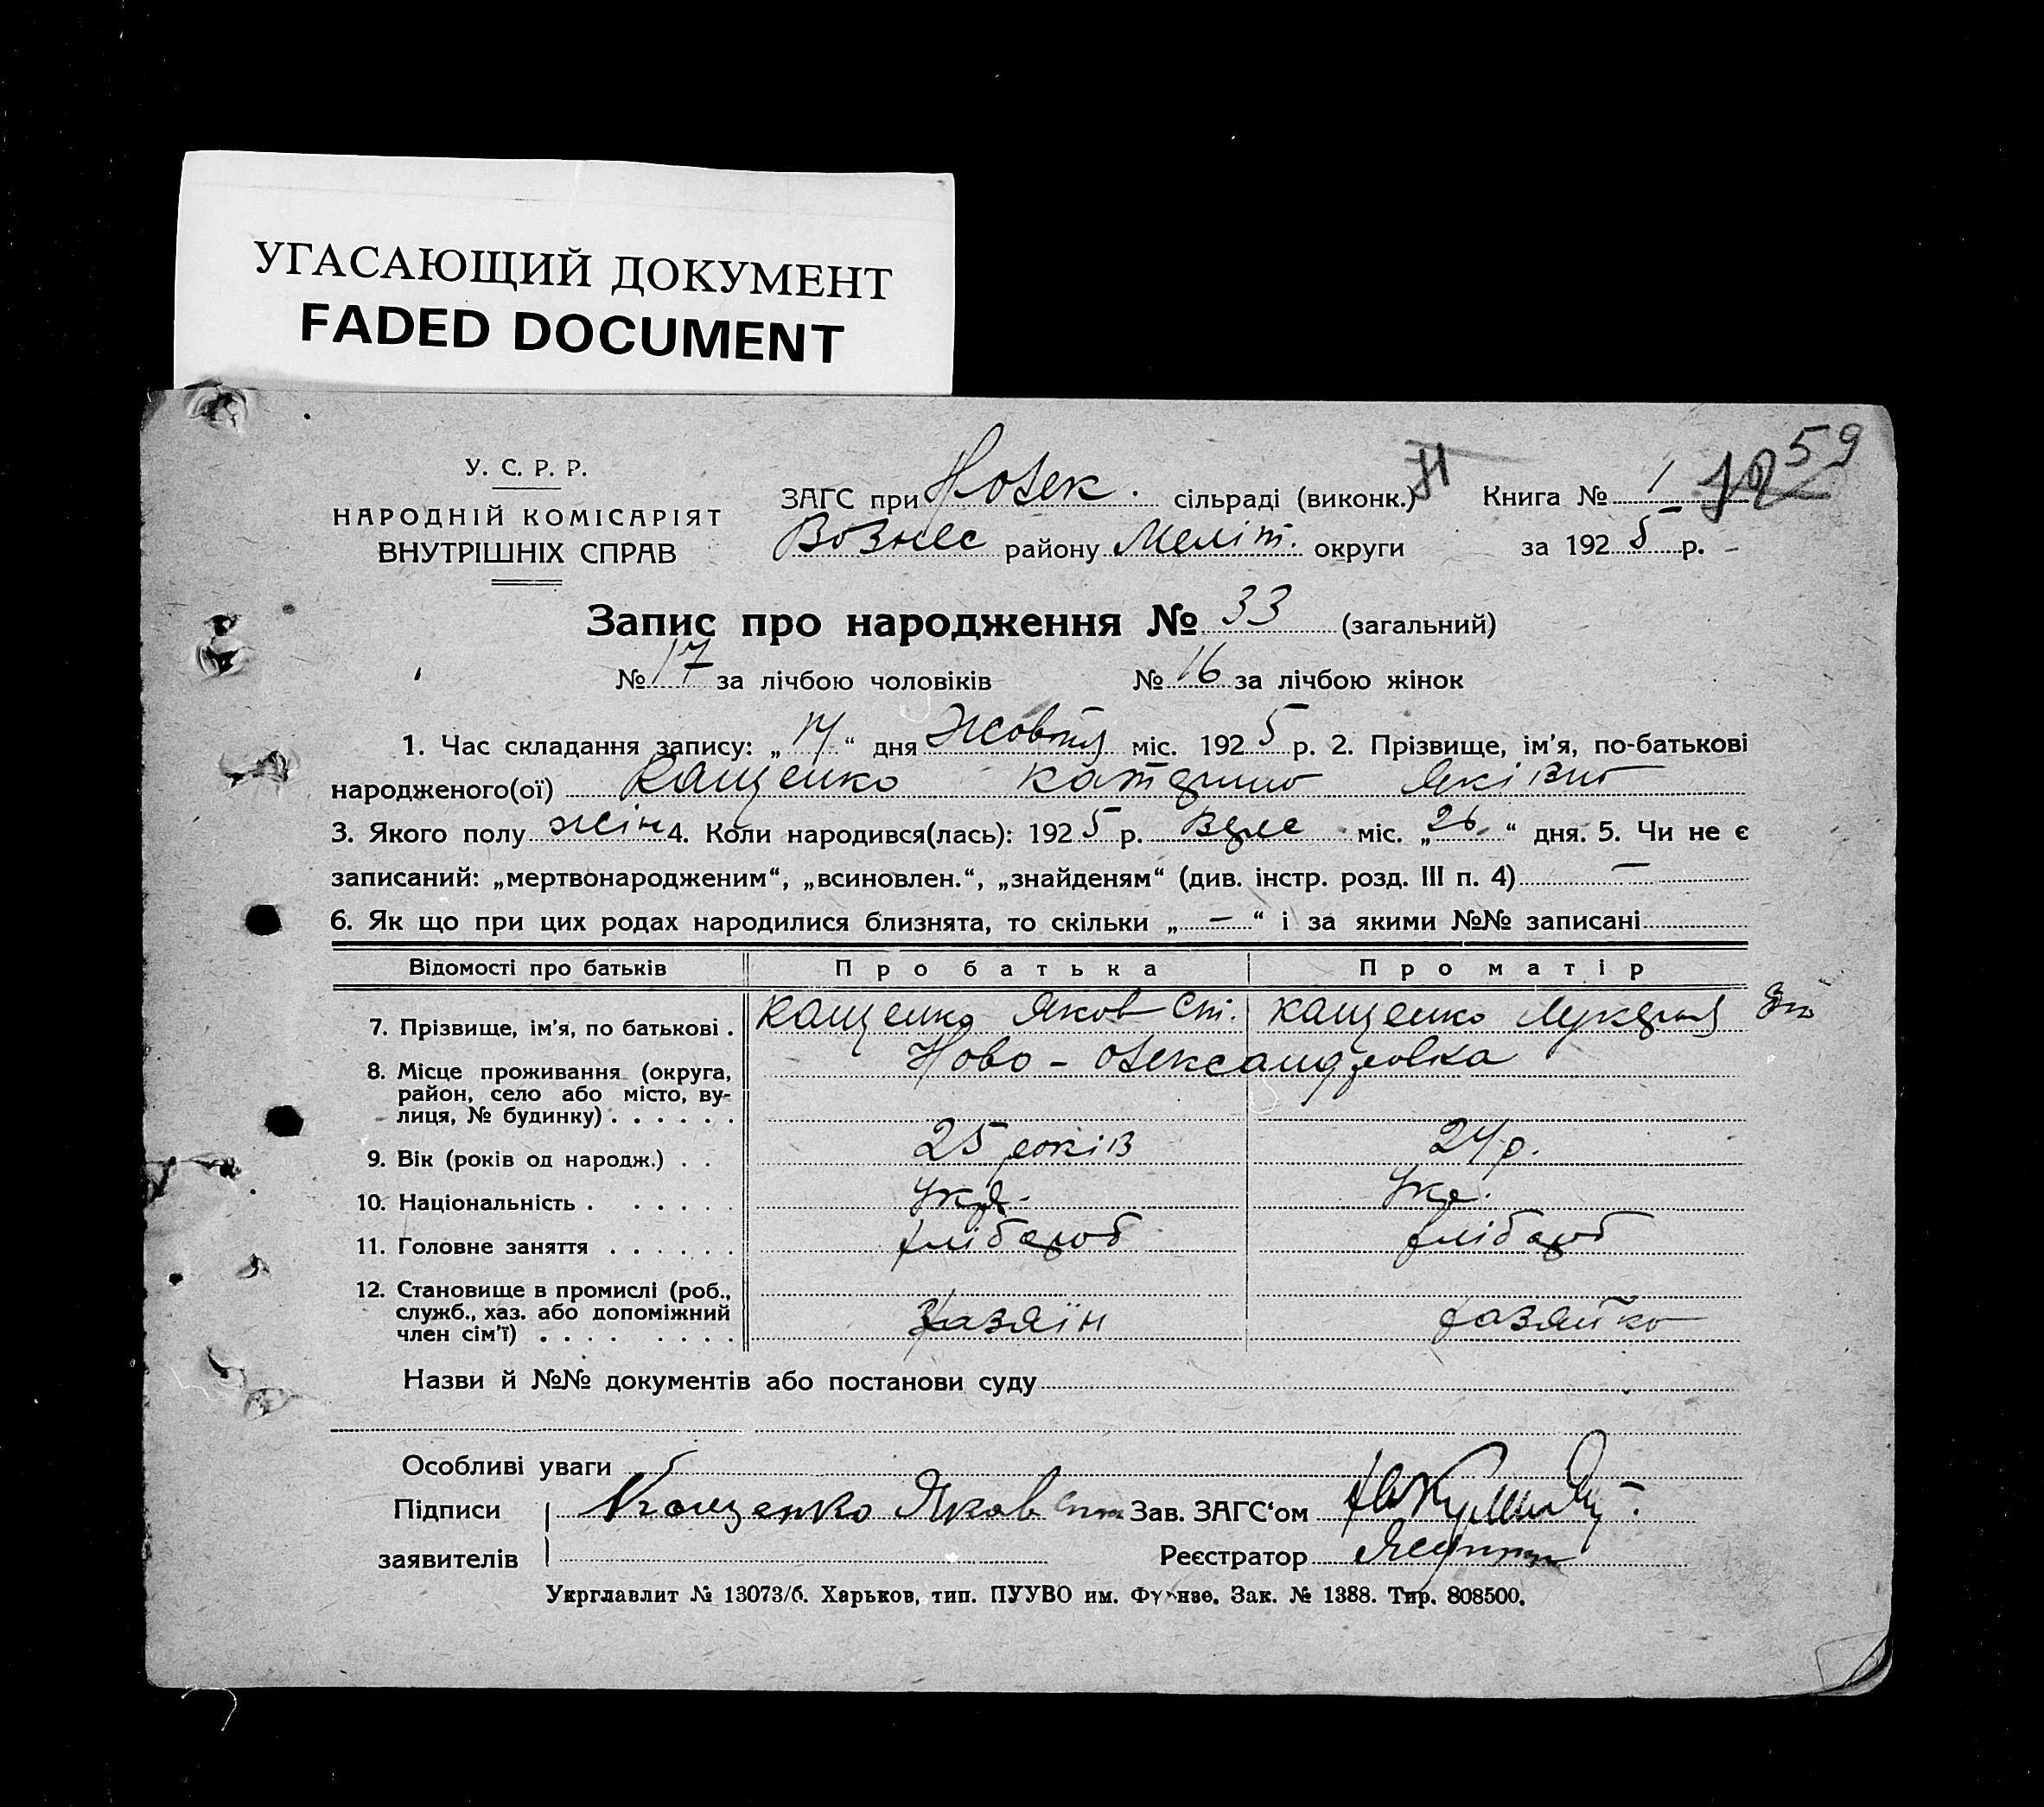 УГАСАЮЩИЙ ДОКУМЕНТ
FADED DOCUMENT
59
У. С. Р. Р.
НАРОДНІЙ КОМІСАРІЯТ
ВНУТРІШНІХ СПРАВ
ЗАГС при Н Олек. сільраді (виконк.) Книга № 1
Вознес району Меліт. округи за 1925 р.
Запис про народження № 33 (загальний)
№ 17 за лічбою чоловіків № 16 за лічбою жінок
1. Час складання запису: „ “ дня Жовтня міс. 1925 р. 2. Прізвище, ім'я, по-батькові
народженого(ої) Кащенко Катерина Яківна
3. Якого полу жін 4. Коли народився(лась): 1925 р. міс. „26“ дня. 5. Чи не є
записаний: „мертвонародженим“, „всиновлен.“, „знайденям“ (див. інстр. розд. III п. 4) —
6. Як що при цих родах народилися близнята, то скільки „—“ і за якими №№ записані
Відомості про батьків Про батька Про матір
7. Прізвище, ім'я, по батькові . Кащенко Яков Ст. Кащенко Лукерия
8. Місце проживання (округа, район, село або місто, ву-лиця, № будинку) . . . . . . Ново-Олександровка
9. Вік (років од народж.) . . 25 років 24 р.
10. Національність . . . . . . Укр. Укр.
11. Головне заняття . . . . . . хлібороб хлібороб
12. Становище в промислі (роб., служб., хаз. або допоміжний член сім'ї) . . . . . . . . хазяїн хазяйка
Назви й №№ документів або постанови суду
Особливі уваги
Підписи Кащенко Яков Зав. ЗАГС'ом
заявителів Реєстратор
Укрглавлит № 13073/б. Харьков, тип. ПУУВО им. Фрунзе. Зак. № 1388. Тир. 808500.